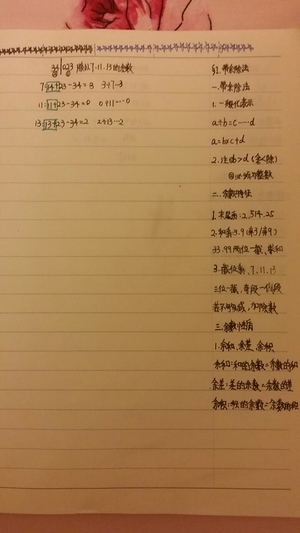 34023 除以7.11.13的余数
7 3÷7…3
0÷11…0
2÷13…2
§1.带余除法
一.带余除法
1.一般化表示
a÷b=c……d
a=b×c+d
2.注①b>d
二.余数特征
1.末尾系:2.5|4.25
2.和系3.9
33.99两位一截、求和
3.截位系、7.11.13
三位一截、奇段一偶段
若不够减,加除数
三.余数性质
1.余和、余差、余积
余和:和的余数=余数的和
余差:差的余数=余数的差
余积:积的余数=余数的积